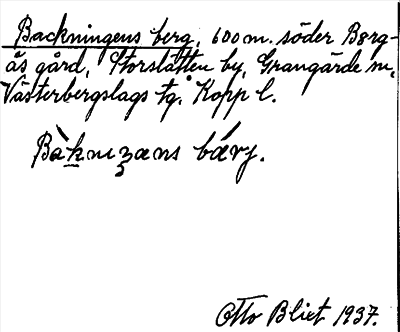 Backningens berg, 600 m. söder Berg-
ås gård, Storslätten by, Grangärde sn,
Västerbergslags tg. Kopp l.
Bàkniʒæns bárj.
Otto Blixt 1937.